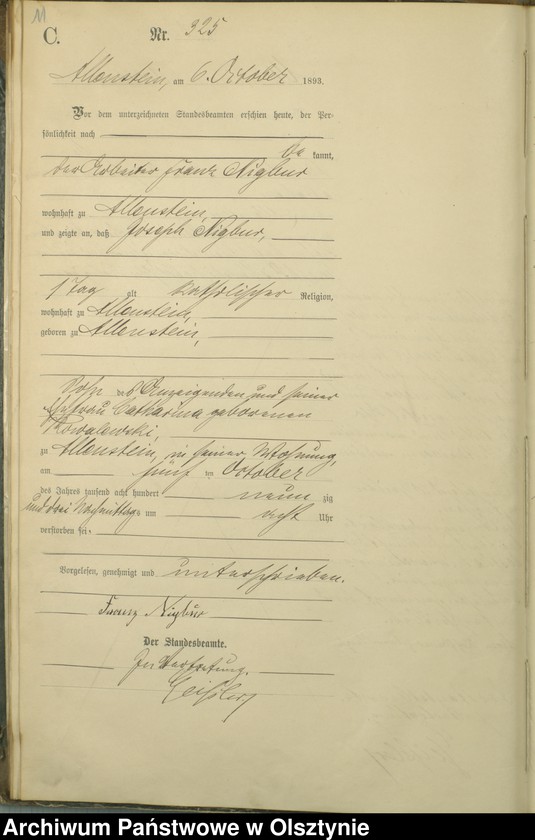 11
C.
Nr. 325
Allenstein, am 6. October 1893.
Vor dem unterzeichneten Standesbeamten erschien heute, der Per-
sönlichkeit nach
be kannt,
der Arbeiter Franz Nigbur
wohnhaft zu Allenstein,
und zeigte an, daß Joseph Nigbur,
1 Tag alt katholischer Religion,
wohnhaft zu Allenstein,
geboren zu Allenstein,
Sohn des Anzeigenden und seiner
Ehefrau Catharina geborenen
Kowalewski,
zu Allenstein, in seiner Wohnung,
am fünf ten October
des Jahres tausend acht hundert neun zig
und drei Nachmittags um acht Uhr
verstorben sei.
Vorgelesen, genehmigt und unterschrieben.
Franz Nigbur
Der Standesbeamte.
In Vertretung.
Archiwum Państwowe w Olsztynie